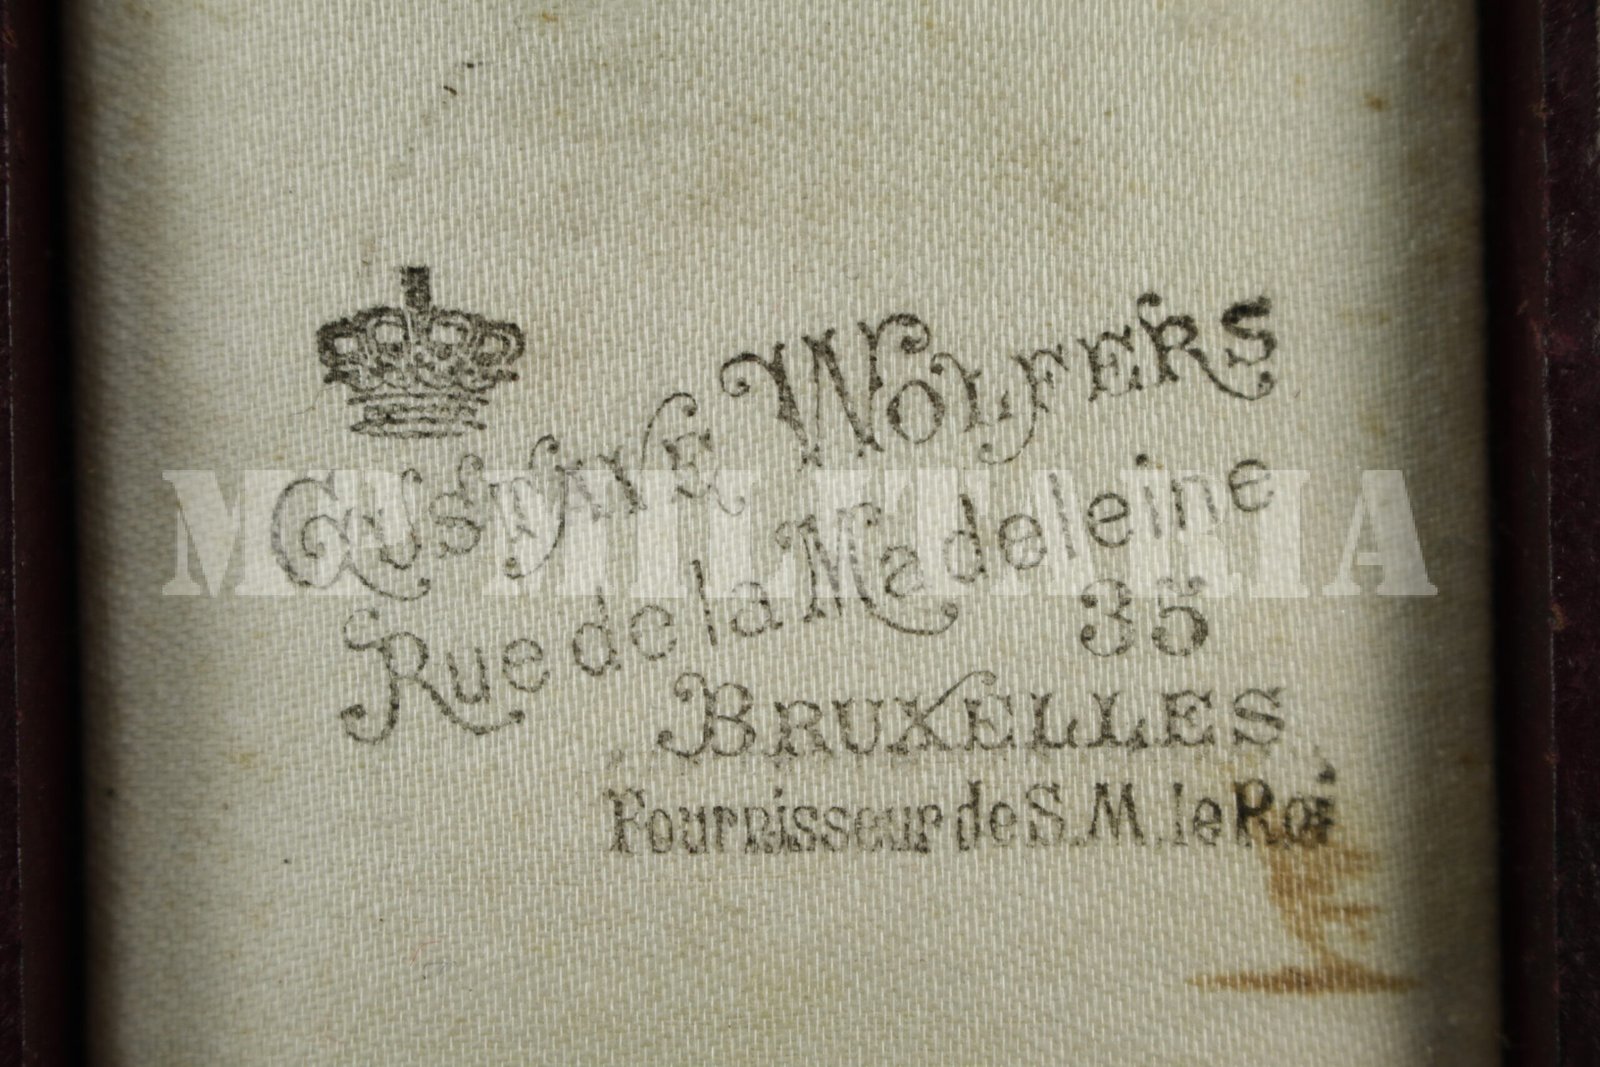 GUSTAVE WOLFERS
Rue de la Madeleine
35
BRUXELLES
Fournisseur de S.M. le Roi
MP MILITARIA